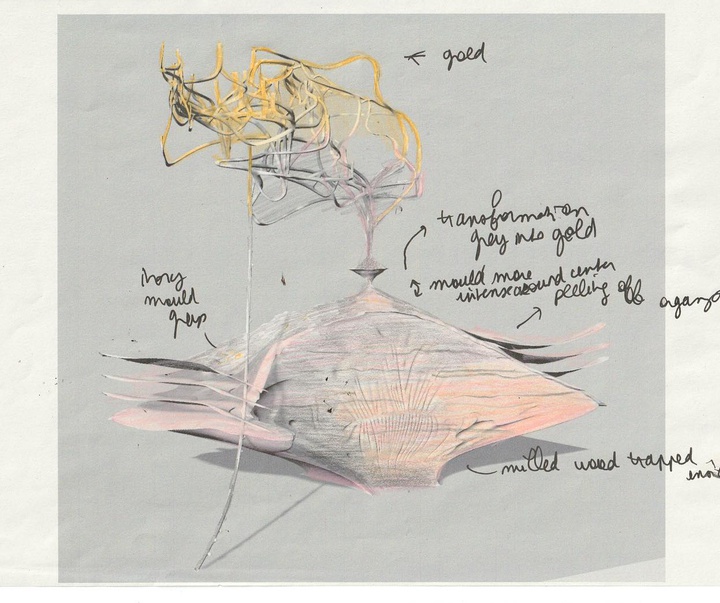 gold
transformation
grey into gold
mould more
intense around center
peeling off
ivory
mould
milled wood trapped